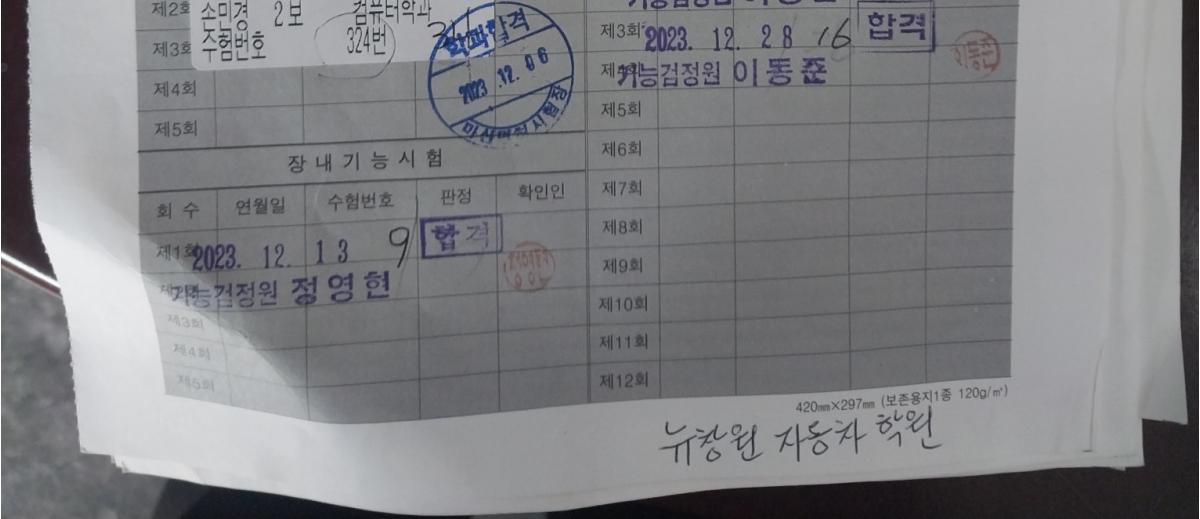 제2회 손민경 2보 컴퓨터학과
제3회 수험번호 324번
제4회
제5회
학과합격
2023.12.06
마산면허시험장
장내기능시험
회 수 연월일 수험번호 판정 확인인
제1회 2023. 12. 13 9 합격
기능검정원 정영현
제3회
제4회
제5회
제3회 2023. 12. 28 16 합격
기능검정원 이동준
이동준
제5회
제6회
제7회
제8회
제9회
제10회
제11회
제12회
420㎜×297㎜ (보존용지1종 120g/㎡)
뉴창원 자동차 학원